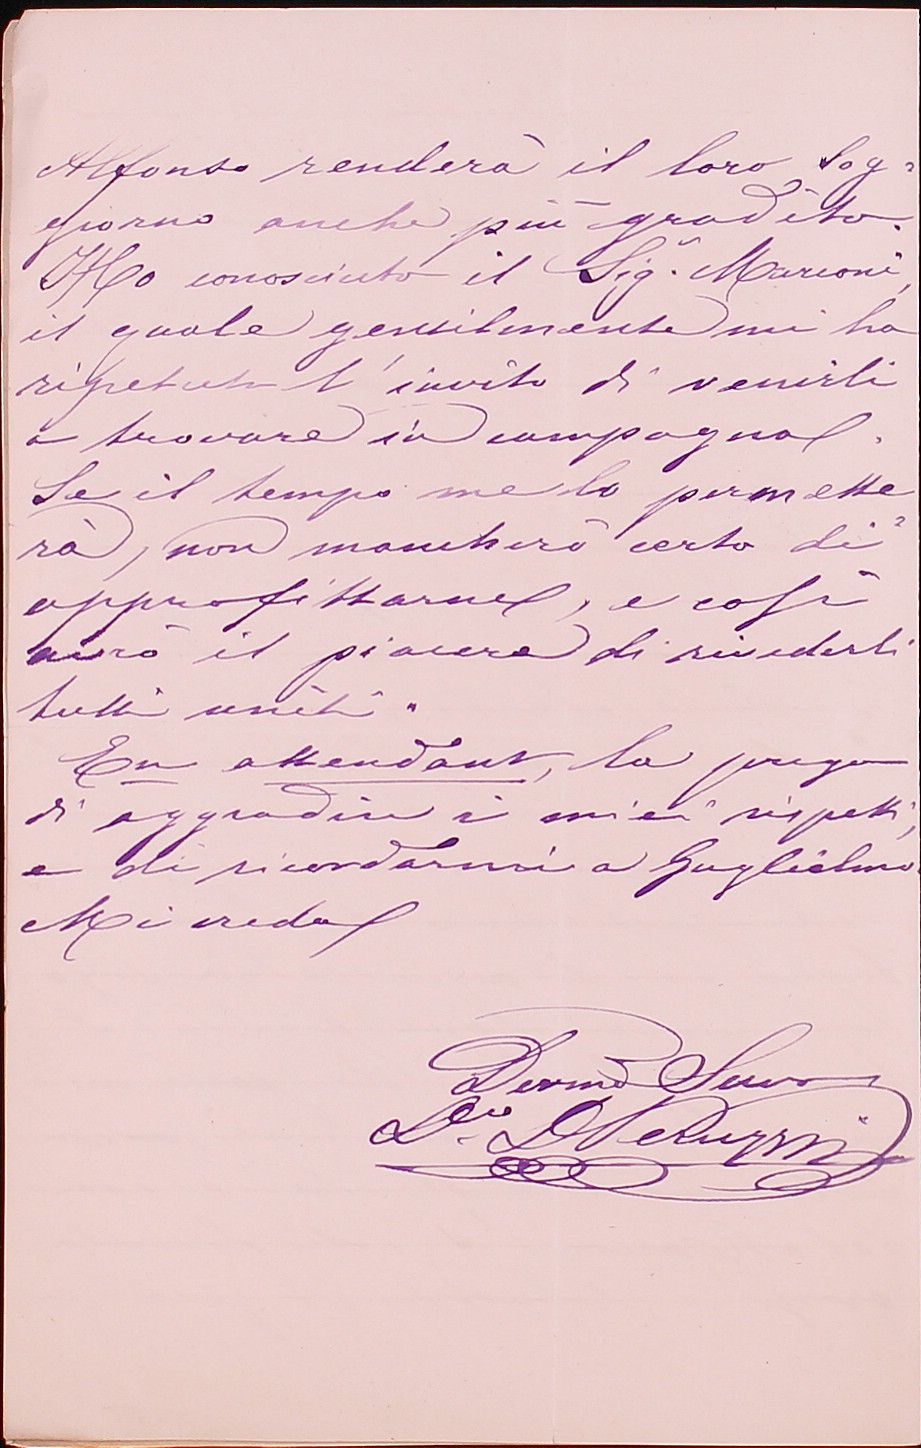 Alfonso renderà il loro sog=
giorno anche più gradito.
Ho conosciuto il Sigr. Marconi,
il quale gentilmente mi ha
ripetuto l'invito di venirli
a trovare in campagna.
Se il tempo me lo permette
rà, non mancherò certo di
approfittarne, e così
avrò il piacere di rivederli
tutti uniti.
En attendant, la prego
di aggradire i miei rispetti,
e di ricordarmi a Guglielmo.
Mi creda
Devmo Servo
D. Peruzzi